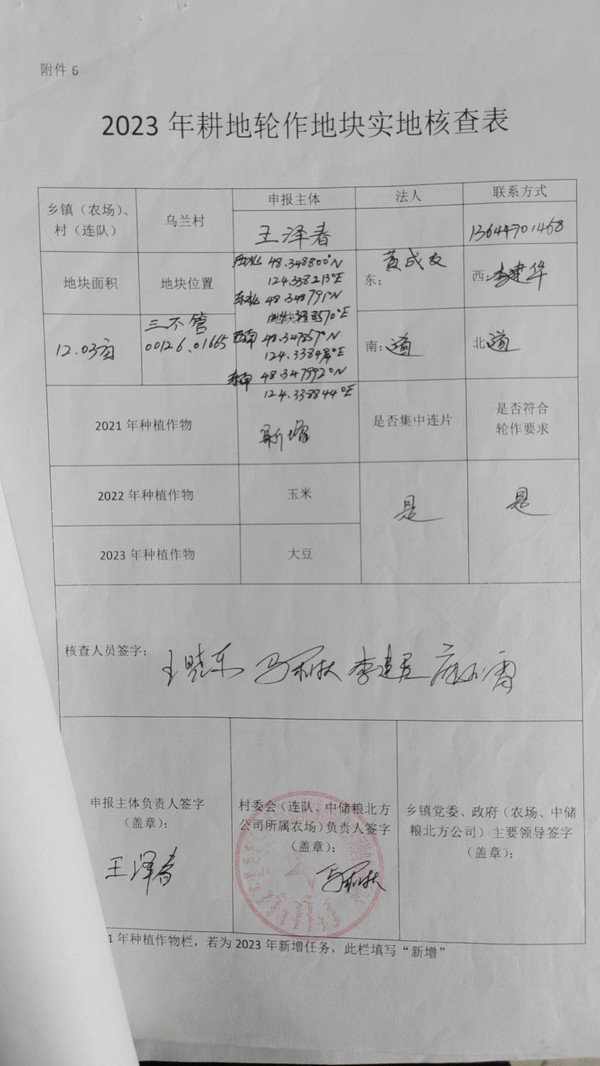 附件 6
2023 年耕地轮作地块实地核查表
乡镇（农场）、
村（连队）
乌兰村
申报主体
法人
联系方式
王泽春
13644701468
地块面积
地块位置
西北 48.348800°N
124.338213°E
东北 48.348791°N
西南 48.347857°N
东南 48.347892°N
124.338844°E
东：
黄成友
西：李建华
12.03亩
三不管
00126.01665
南：道
北 道
2021 年种植作物
新增
是否集中连片
是否符合
轮作要求
2022 年种植作物
玉米
是
是
2023 年种植作物
大豆
核查人员签字：
王晓东
申报主体负责人签字
（盖章）：
王泽春
村委会（连队、中储粮北方
公司所属农场）负责人签字
（盖章）：
乡镇党委、政府（农场、中储
粮北方公司）主要领导签字
（盖章）：
1 年种植作物栏，若为 2023 年新增任务，此栏填写“新增”